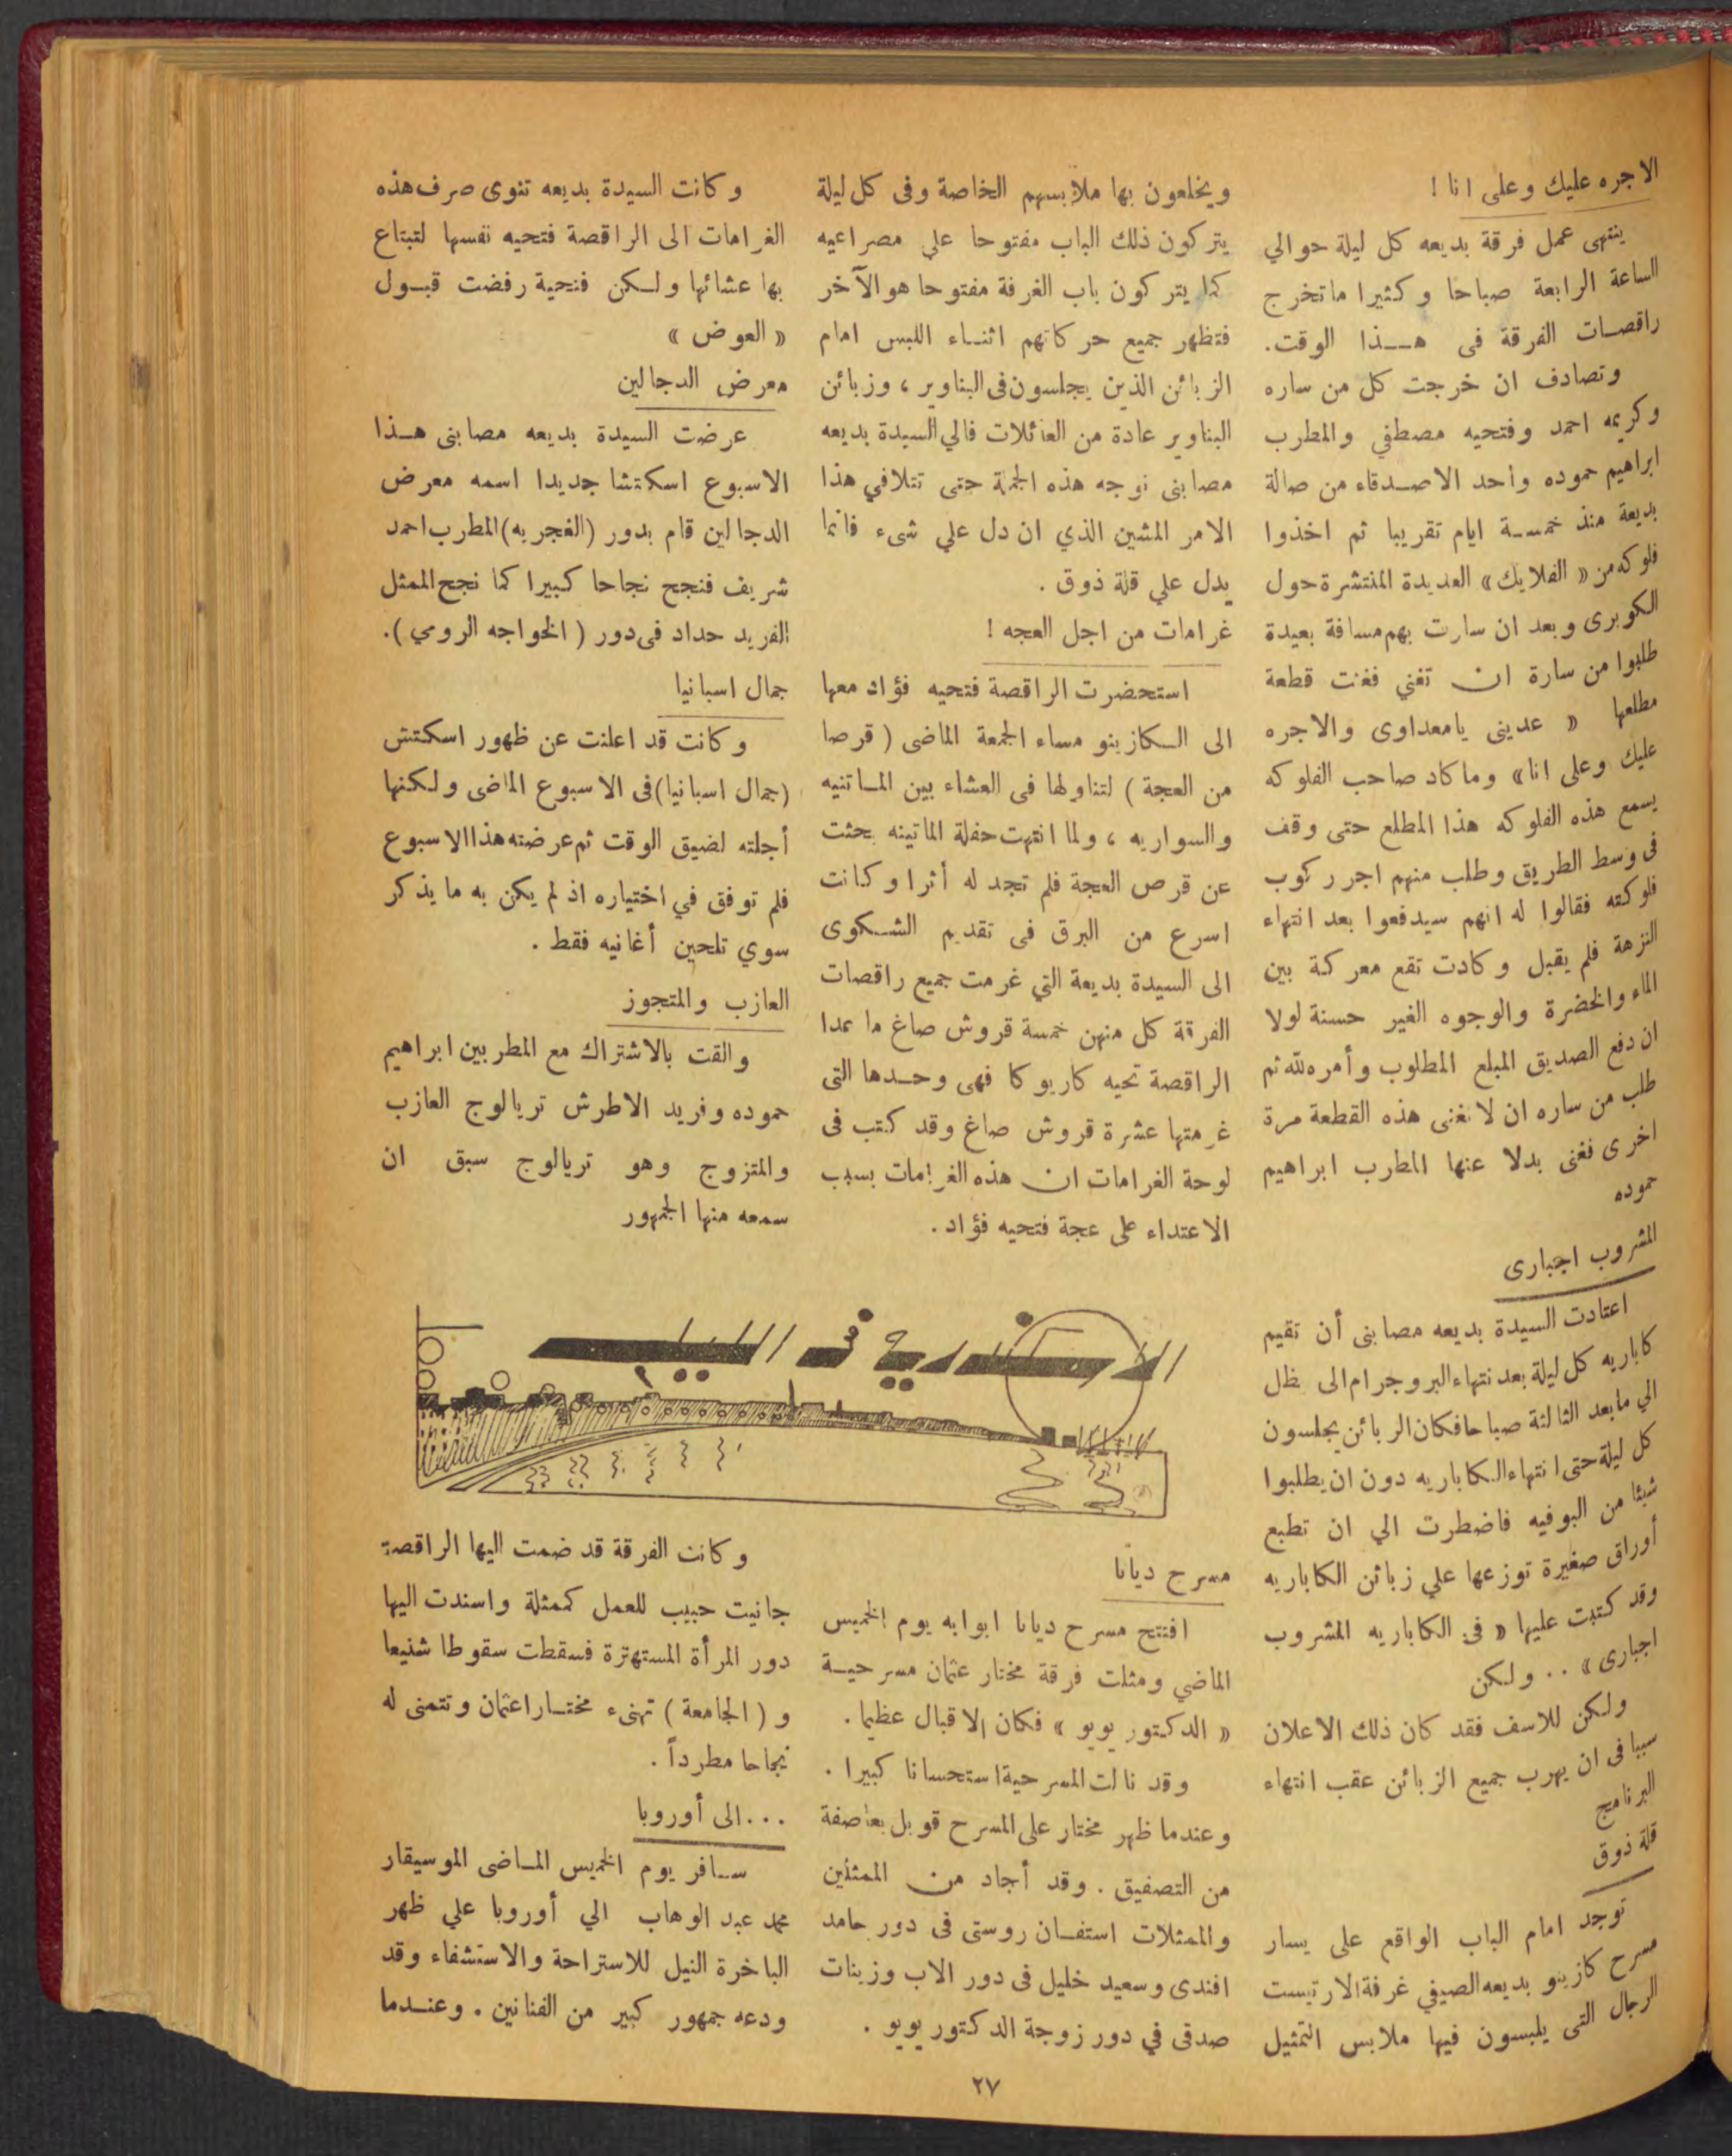 الاجره عليك وعلى انا !
ينتهى عمل فرقة بديعه كل ليلة حوالي
الساعة الرابعة صباحا وكثيرا ماتخرج
راقصات الفرقة فى هـذا الوقت.
وتصادف ان خرجت كل من ساره
وكريمه احمد وفتحيه مصطفي والمطرب
ابراهيم حموده واحد الاصدقاء من صالة
بديعة منذ خمسة ايام تقريبا ثم اخذوا
فلوكه من « الفلايك» العديدة المنتشرة حول
الكوبرى وبعد ان سارت بهم مسافة بعيدة
طلبوا من سارة ان تغني فغنت قطعة
مطلعها « عدينى يامعداوى والاجره
عليك وعلى انا» وما كاد صاحب الفلوكه
يسمع هذه الفلوكه هذا المطلع حتى وقف
فى وسط الطريق وطلب منهم اجر ركوب
فلوكته فقالوا له انهم سيدفعوا بعد انتهاء
النزهة فلم يقبل وكادت تقع معركة بين
الماء والخضرة والوجوه الغير حسنة لولا
ان دفع الصديق المبلع المطلوب وأمره لله ثم
طلب من ساره ان لا تغنى هذه القطعة مرة
اخرى فغنى بدلا عنها المطرب ابراهيم
حموده
المشروب اجبارى
اعتادت السيدة بديعه مصابنى أن تقيم
كاباريه كل ليلة بعد نتهاء البروجرام الى يظل
الي ما بعد الثالثة صباحا فكان الزبائن يجلسون
كل ليلة حتى انتهاء الكاباريه دون ان يطلبوا
شيئا من البوفيه فاضطرت الي ان تطبع
أوراق صغيرة توزعها علي زبائن الكاباريه
وقد كتبت عليها « فى الكاباريه المشروب
اجبارى» .. ولكن
ولكن للاسف فقد كان ذلك الاعلان
سببا فى ان يهرب جميع الزبائن عقب انتهاء
البرنامج
قلة ذوق
توجد امام الباب الواقع على يسار
مسرح كازينو بديعه الصيفي غرفة الارتيست
الرجال التى يلبسون فيها ملابس التمثيل
ويخلعون بها ملابسهم الخاصة وفى كل ليلة
يتركون ذلك الباب مفتوحا على مصراعيه
كما يتركون باب الغرفة مفتوحا هو الآخر
فتظهر جميع حركاتهم اثناء اللبس امام
الزبائن الذين يجلسون فى البناوير ، وزبائن
البناوير عادة من العائلات فالي السيدة بديعه
مصابنى نوجه هذه الجملة حتى تتلافي هذا
الامر المشين الذي ان دل علي شىء فانما
يدل علي قلة ذوق .
غرامات من اجل العجه !
استحضرت الراقصة فتحيه فؤاد معها
الى الكازينو مساء الجمعة الماضى ( قرصا
من العجة ) لتناولها فى العشاء بين الماتنيه
والسواريه ، ولما انتهت حفلة الماتينه بحثت
عن قرص العجة فلم تجد له أثرا وكانت
اسرع من البرق فى تقديم الشكوى
الى السيدة بديعة التي غرمت جميع راقصات
الفرقة كل منهن خمسة قروش صاغ ما عدا
الراقصة تحيه كاريوكا فهى وحدها التى
غرمتها عشرة قروش صاغ وقد كتب فى
لوحة الغرامات ان هذه الغرامات بسبب
الاعتداء على عجة فتحيه فؤاد .
وكانت السيدة بديعه تنوى صرف هذه
الغرامات الى الراقصة فتحيه نفسها لتبتاع
بها عشائها ولكن فتحية رفضت قبول
« العوض »
معرض الدجالين
عرضت السيدة بديعه مصابنى هـذا
الاسبوع اسكتشا جديدا اسمه معرض
الدجالين قام بدور (الغجريه) المطرب احمد
شريف فنجح نجاحا كبيرا كما نجح الممثل
الفريد حداد فى دور ( الخواجه الرومي ).
جمال اسبانيا
وكانت قد اعلنت عن ظهور اسكتش
(جمال اسبانيا) فى الاسبوع الماضى ولكنها
أجلته لضيق الوقت ثم عرضته هذا الاسبوع
فلم توفق في اختياره اذ لم يكن به ما يذكر
سوي تلحين أغانيه فقط .
العازب والمتجوز
والقت بالاشتراك مع المطربين ابراهيم
حموده وفريد الاطرش تريالوج العازب
والمتزوج وهو تريالوج سبق ان
سمعه منها الجمهور
الاسكندرية فى الليل
مسرح ديانا
افتتح مسرح ديانا ابوابه يوم الخميس
الماضي ومثلت فرقة مختار عثمان مسرحية
« الدكتور يويو » فكان الاقبال عظيما .
وقد نالت المسرحية استحسانا كبيرا .
وعندما ظهر مختار على المسرح قوبل بعاصفة
من التصفيق . وقد أجاد من الممثلين
والممثلات استفان روستى فى دور حامد
افندى وسعيد خليل فى دور الاب وزينات
صدقى في دور زوجة الدكتور يويو .
وكانت الفرقة قد ضمت اليها الراقصة
جانيت حبيب للعمل كممثلة واسندت اليها
دور المرأة المستهترة فسقطت سقوطا شنيعا
و ( الجامعة ) تهنىء مختار اعثمان وتتمنى له
نجاحا مطرداً .
...الى أوروبا
سافر يوم الخميس الماضى الموسيقار
محمد عبد الوهاب الي أوروبا علي ظهر
الباخرة النيل للاستراحة والاستشفاء وقد
ودعه جمهور كبير من الفنانين . وعندما
٢٧